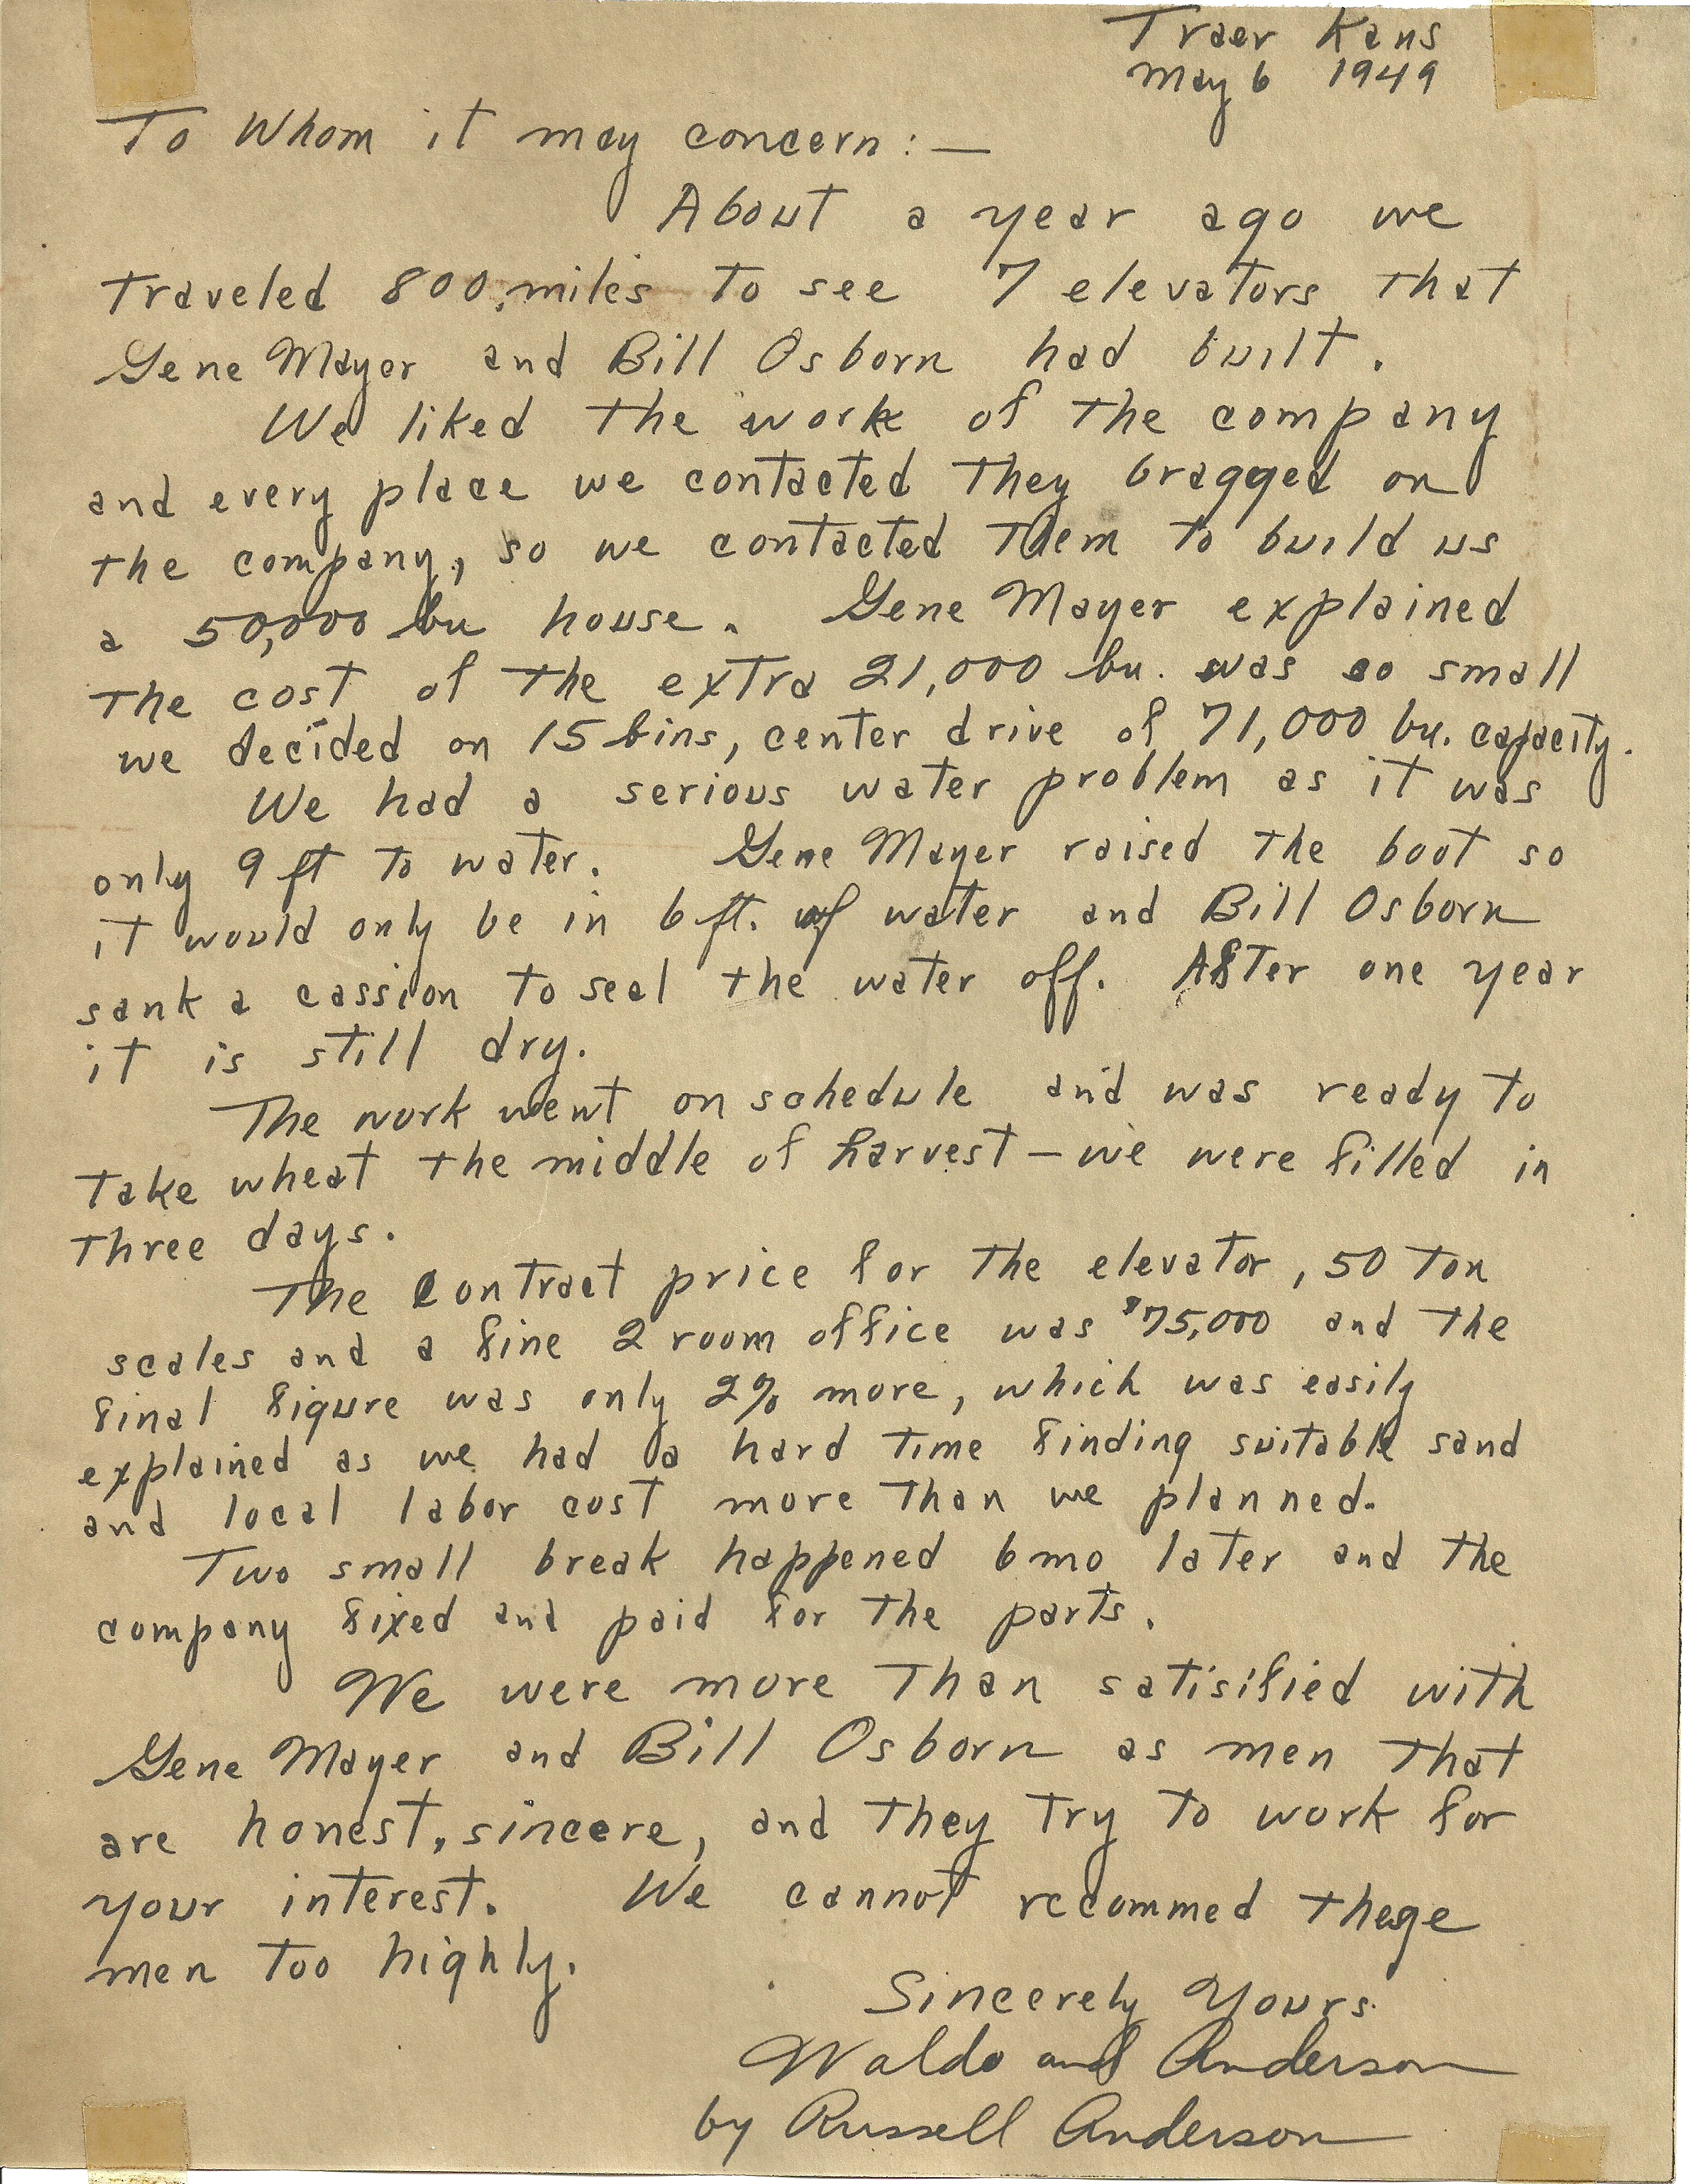 Traer Kans
May 6 1949
To Whom it may concern:—
About a year ago we
traveled 800 miles to see 7 elevators that
Gene Mayer and Bill Osborn had built.
We liked the work of the company
and every place we contacted they bragged on
the company, so we contacted them to build us
a 50,000 bu house. Gene Mayer explained
the cost of the extra 21,000 bu. was so small
we decided on 15 bins, center drive of 71,000 bu. capacity.
We had a serious water problem as it was
only 9 ft to water. Gene Mayer raised the boot so
it would only be in 6 ft. of water and Bill Osborn
sank a cassion to seal the water off. After one year
it is still dry.
The work went on schedule and was ready to
take wheat the middle of harvest — we were filled in
three days.
The contract price for the elevator, 50 ton
scales and a fine 2 room office was $75,000 and the
final figure was only 2% more, which was easily
explained as we had a hard time finding suitable sand
and local labor cost more than we planned.
Two small break happened 6 mo later and the
company fixed and paid for the parts.
We were more than satisified with
Gene Mayer and Bill Osborn as men that
are honest, sincere, and they try to work for
your interest. We cannot recommed these
men too highly.
Sincerely Yours
Waldo and Anderson
by Russell Anderson